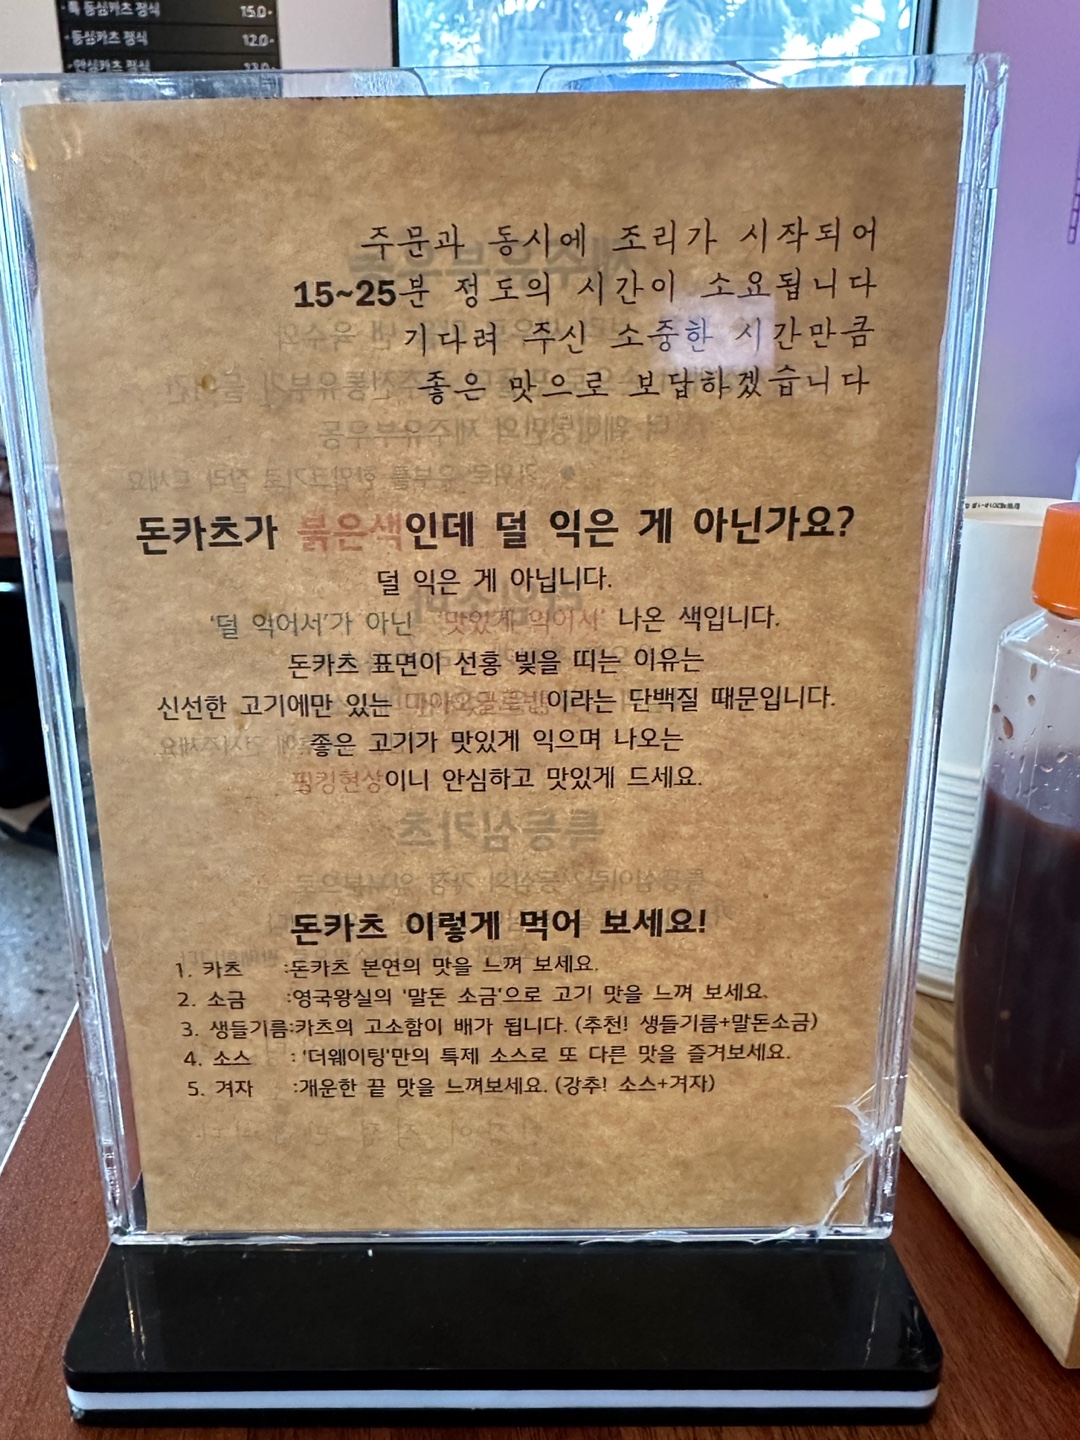 특 등심카츠 정식 15.0
등심카츠 정식 12.0
안심카츠 정식 13.0
주문과 동시에 조리가 시작되어
15~25분 정도의 시간이 소요됩니다
기다려 주신 소중한 시간만큼
좋은 맛으로 보답하겠습니다
돈카츠가 붉은색인데 덜 익은 게 아닌가요?
덜 익은 게 아닙니다.
'덜 익어서'가 아닌 '맛있게 익어서' 나온 색입니다.
돈카츠 표면이 선홍 빛을 띠는 이유는
신선한 고기에만 있는 이라는 단백질 때문입니다.
좋은 고기가 맛있게 익으며 나오는
핑킹현상이니 안심하고 맛있게 드세요.
돈카츠 이렇게 먹어 보세요!
1. 카츠 :돈카츠 본연의 맛을 느껴 보세요.
2. 소금 :영국왕실의 '말돈 소금'으로 고기 맛을 느껴 보세요.
3. 생들기름:카츠의 고소함이 배가 됩니다. (추천! 생들기름+말돈소금)
4. 소스 : '더웨이팅'만의 특제 소스로 또 다른 맛을 즐겨보세요.
5. 겨자 :개운한 끝 맛을 느껴보세요. (강추! 소스+겨자)